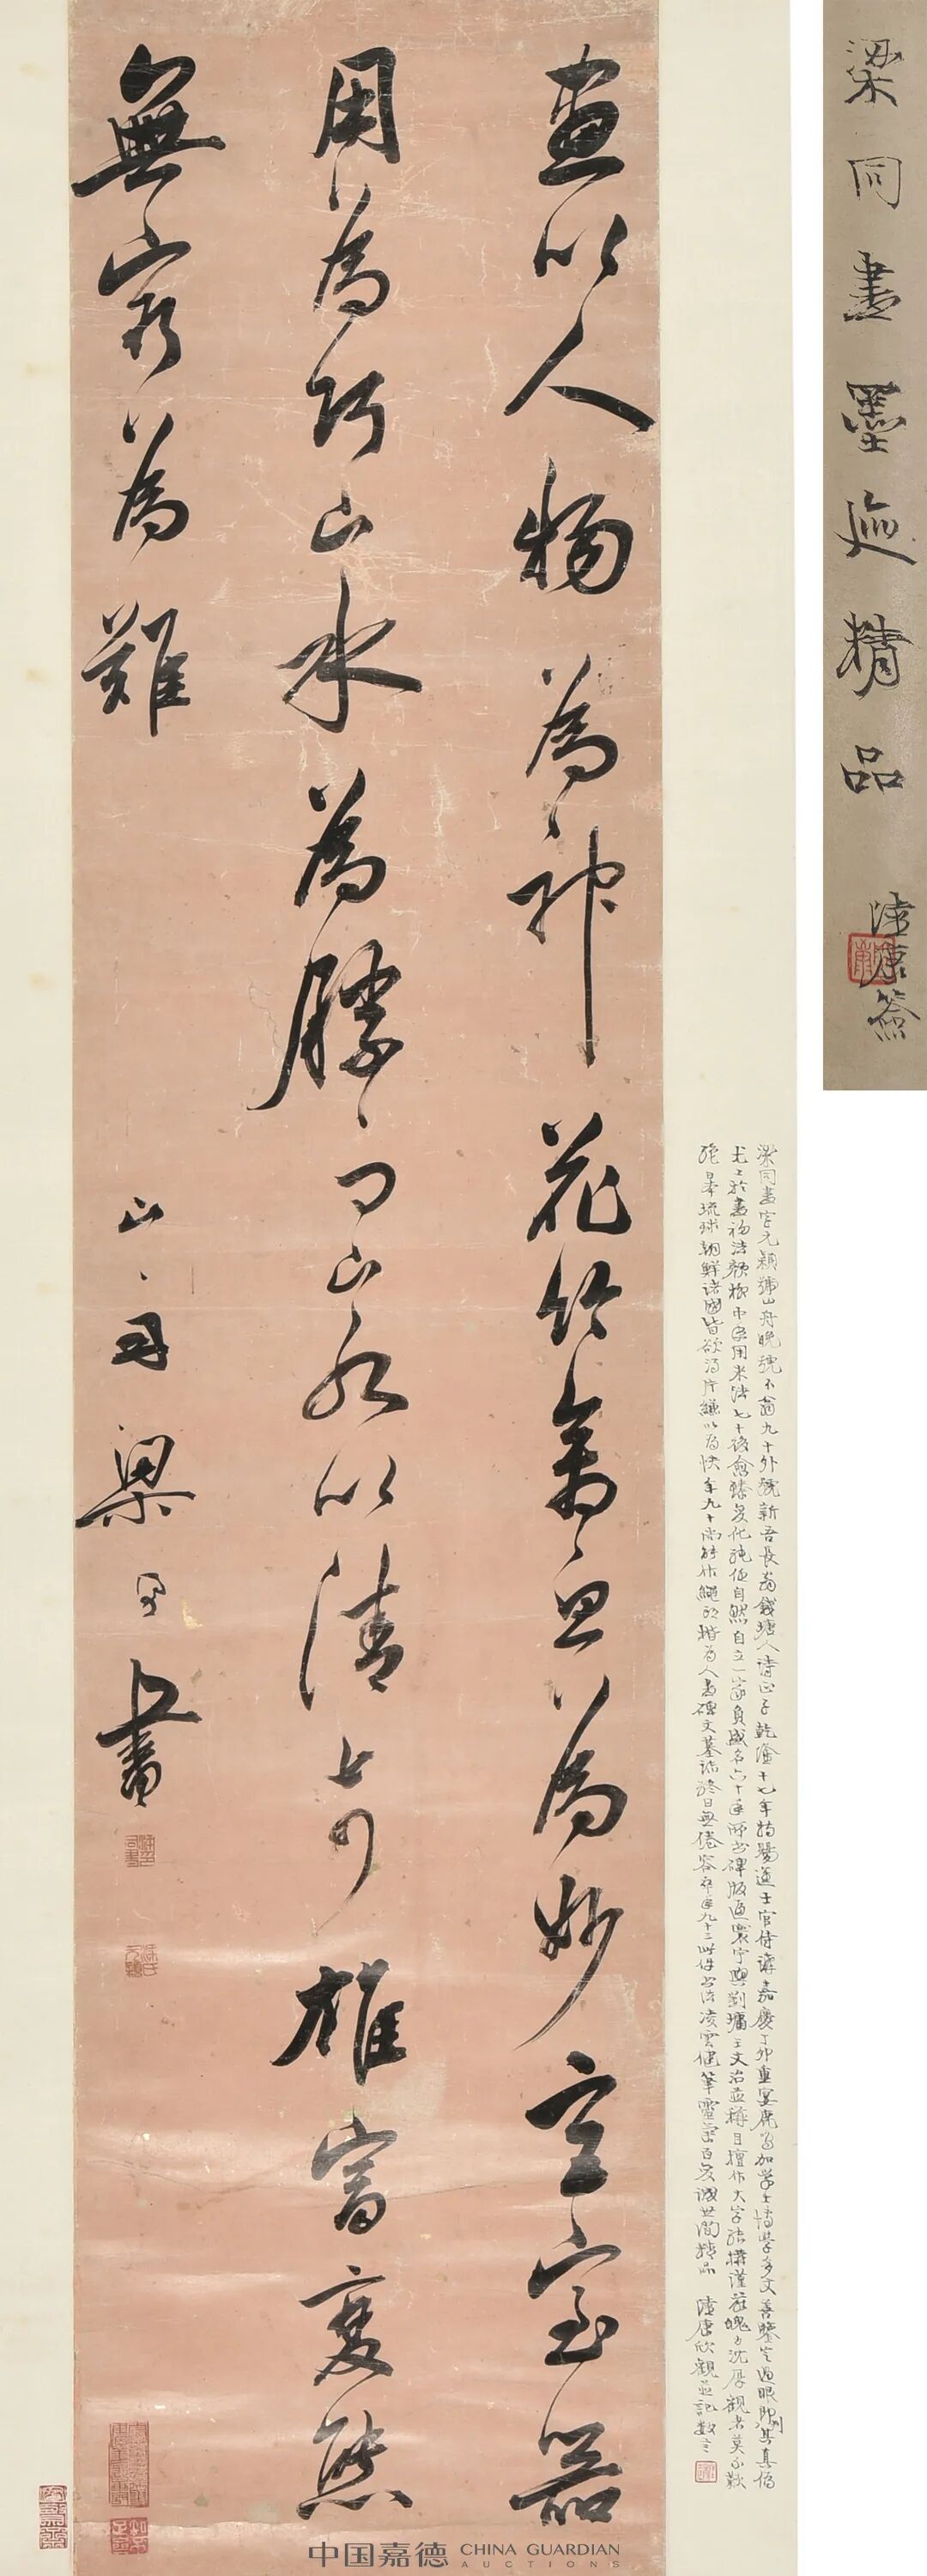 梁同書墨迹精品
陸康簽
梁同書字元穎號山舟晚號不翁九十外號新吾長翁錢塘人詩正子乾隆十七年特賜進士官侍講嘉慶丁卯重宴鹿鳴加學士博學多文善鑒定過眼即別其真偽
尤工於書初法顏柳中年用米法七十後愈臻變化純任自然自立一家負盛名六十年所書碑版遍寰宇與劉墉王文治並稱自擅作大字結構謹嚴魄力沈厚觀者莫不歎
絕日本琉球朝鮮諸國皆欲得片縑以為快年九十尚能作蠅頭楷為人書碑文墓誌終日無倦容卒年九十三此件書法凌雲健筆百變誠世間精品 陸康欣觀並記數言
畫以人物為神花竹禽魚為妙宮室器
用為巧山水為勝而山水以清奇雄富變態
無窮為難
山舟梁同書
中国嘉德 CHINA GUARDIAN AUCTIONS